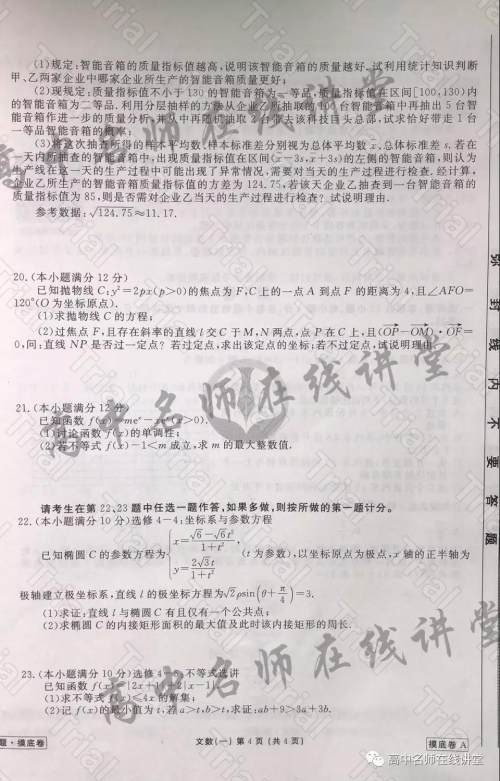 (1)规定:智能音箱的质量指标值越高,说明该智能音箱的质量越好。试利用统计知识判断
甲、乙两家企业中哪家企业所生产的智能音箱质量更好;
(2)现规定:质量指标值不小于130的智能音箱为一等品,质量指标值在区间[100,130)内
的智能音箱为二等品.利用分层抽样的方法从企业乙所抽取的 台智能音箱中再抽出5台智
能音箱作进一步的质量分析,并从中再随机抽取 去该科技目头总部,试求恰好带走1台
一等品智能音箱的概率;
(3) 次抽查所得的样本平均数、样本标准差分别视为总体平均数x、总体标准差s.若在
一天内所抽查的智能音箱中,出现质量指标值在区间(x-3s,x+3s)的左侧的智能音箱,则认为
生产线在这一天的生产过程中可能出现了异常情况,需要对当天的生产过程进行检查.经计算,
企业乙所生产的智能音箱质量指标值的方差为124.75,若该天企业乙抽查到一台智能音箱的
质量指标值为85,则是否需对企业乙当天的生产过程进行检查?试说明理由.
参考数据:√124.75≈11.17.
20.(本小题满分12分)
已知抛物线C:y²=2px(p>0)的焦点为F,C上的一点A到点F的距离为4,且∠AFO=
120°(O为坐标原点).
(1)求抛物线C的方程;
(2)过焦点F,且存在斜率的直线l交C于M,N两点,点P在C上,且(OP-OM)·OF=
0,问:直线NP是否过一定点?若过定点,求出该定点的坐标;若不过定点,试说明理由.
21.(本小题满分12分)
已知函数f(x)=me^x-x (x>0).
(1)讨论函数f(x)的单调性;
(2)若不等式f(x)-1<m成立,求m的最大整数值.
请考生在第22、23题中任选一题作答,如果多做,则按所做的第一题计分。
22.(本小题满分10分)选修4-4:坐标系与参数方程
已知椭圆C的参数方程为{x=(√6-√6t²)/(1+t²), y=2√3t/(1+t²) (t为参数),以坐标原点为极点,x轴的正半轴为
极轴建立极坐标系,直线l的极坐标方程为√2ρsin(θ+π/4)=3.
(1)求证:直线l与椭圆C有且仅有一个公共点;
(2)求椭圆C的内接矩形面积的最大值及此时该内接矩形的周长.
23.(本小题满分10分)选修4-5:不等式选讲
已知函数f(x)=|2x+1|+2|x-1|.
(1)求不等式f(x)<4x的解集;
(2)记f(x)的最小值为t,若a>t,b>t,求证:ab+9>3a+3b.
题·摸底卷
文数(一) 第4页(共4页)
摸底卷A
弥封线内不要答题
高中名师在线讲堂
高中名师在线讲堂
高中名师在线讲堂
高中名师在线讲堂
Trial